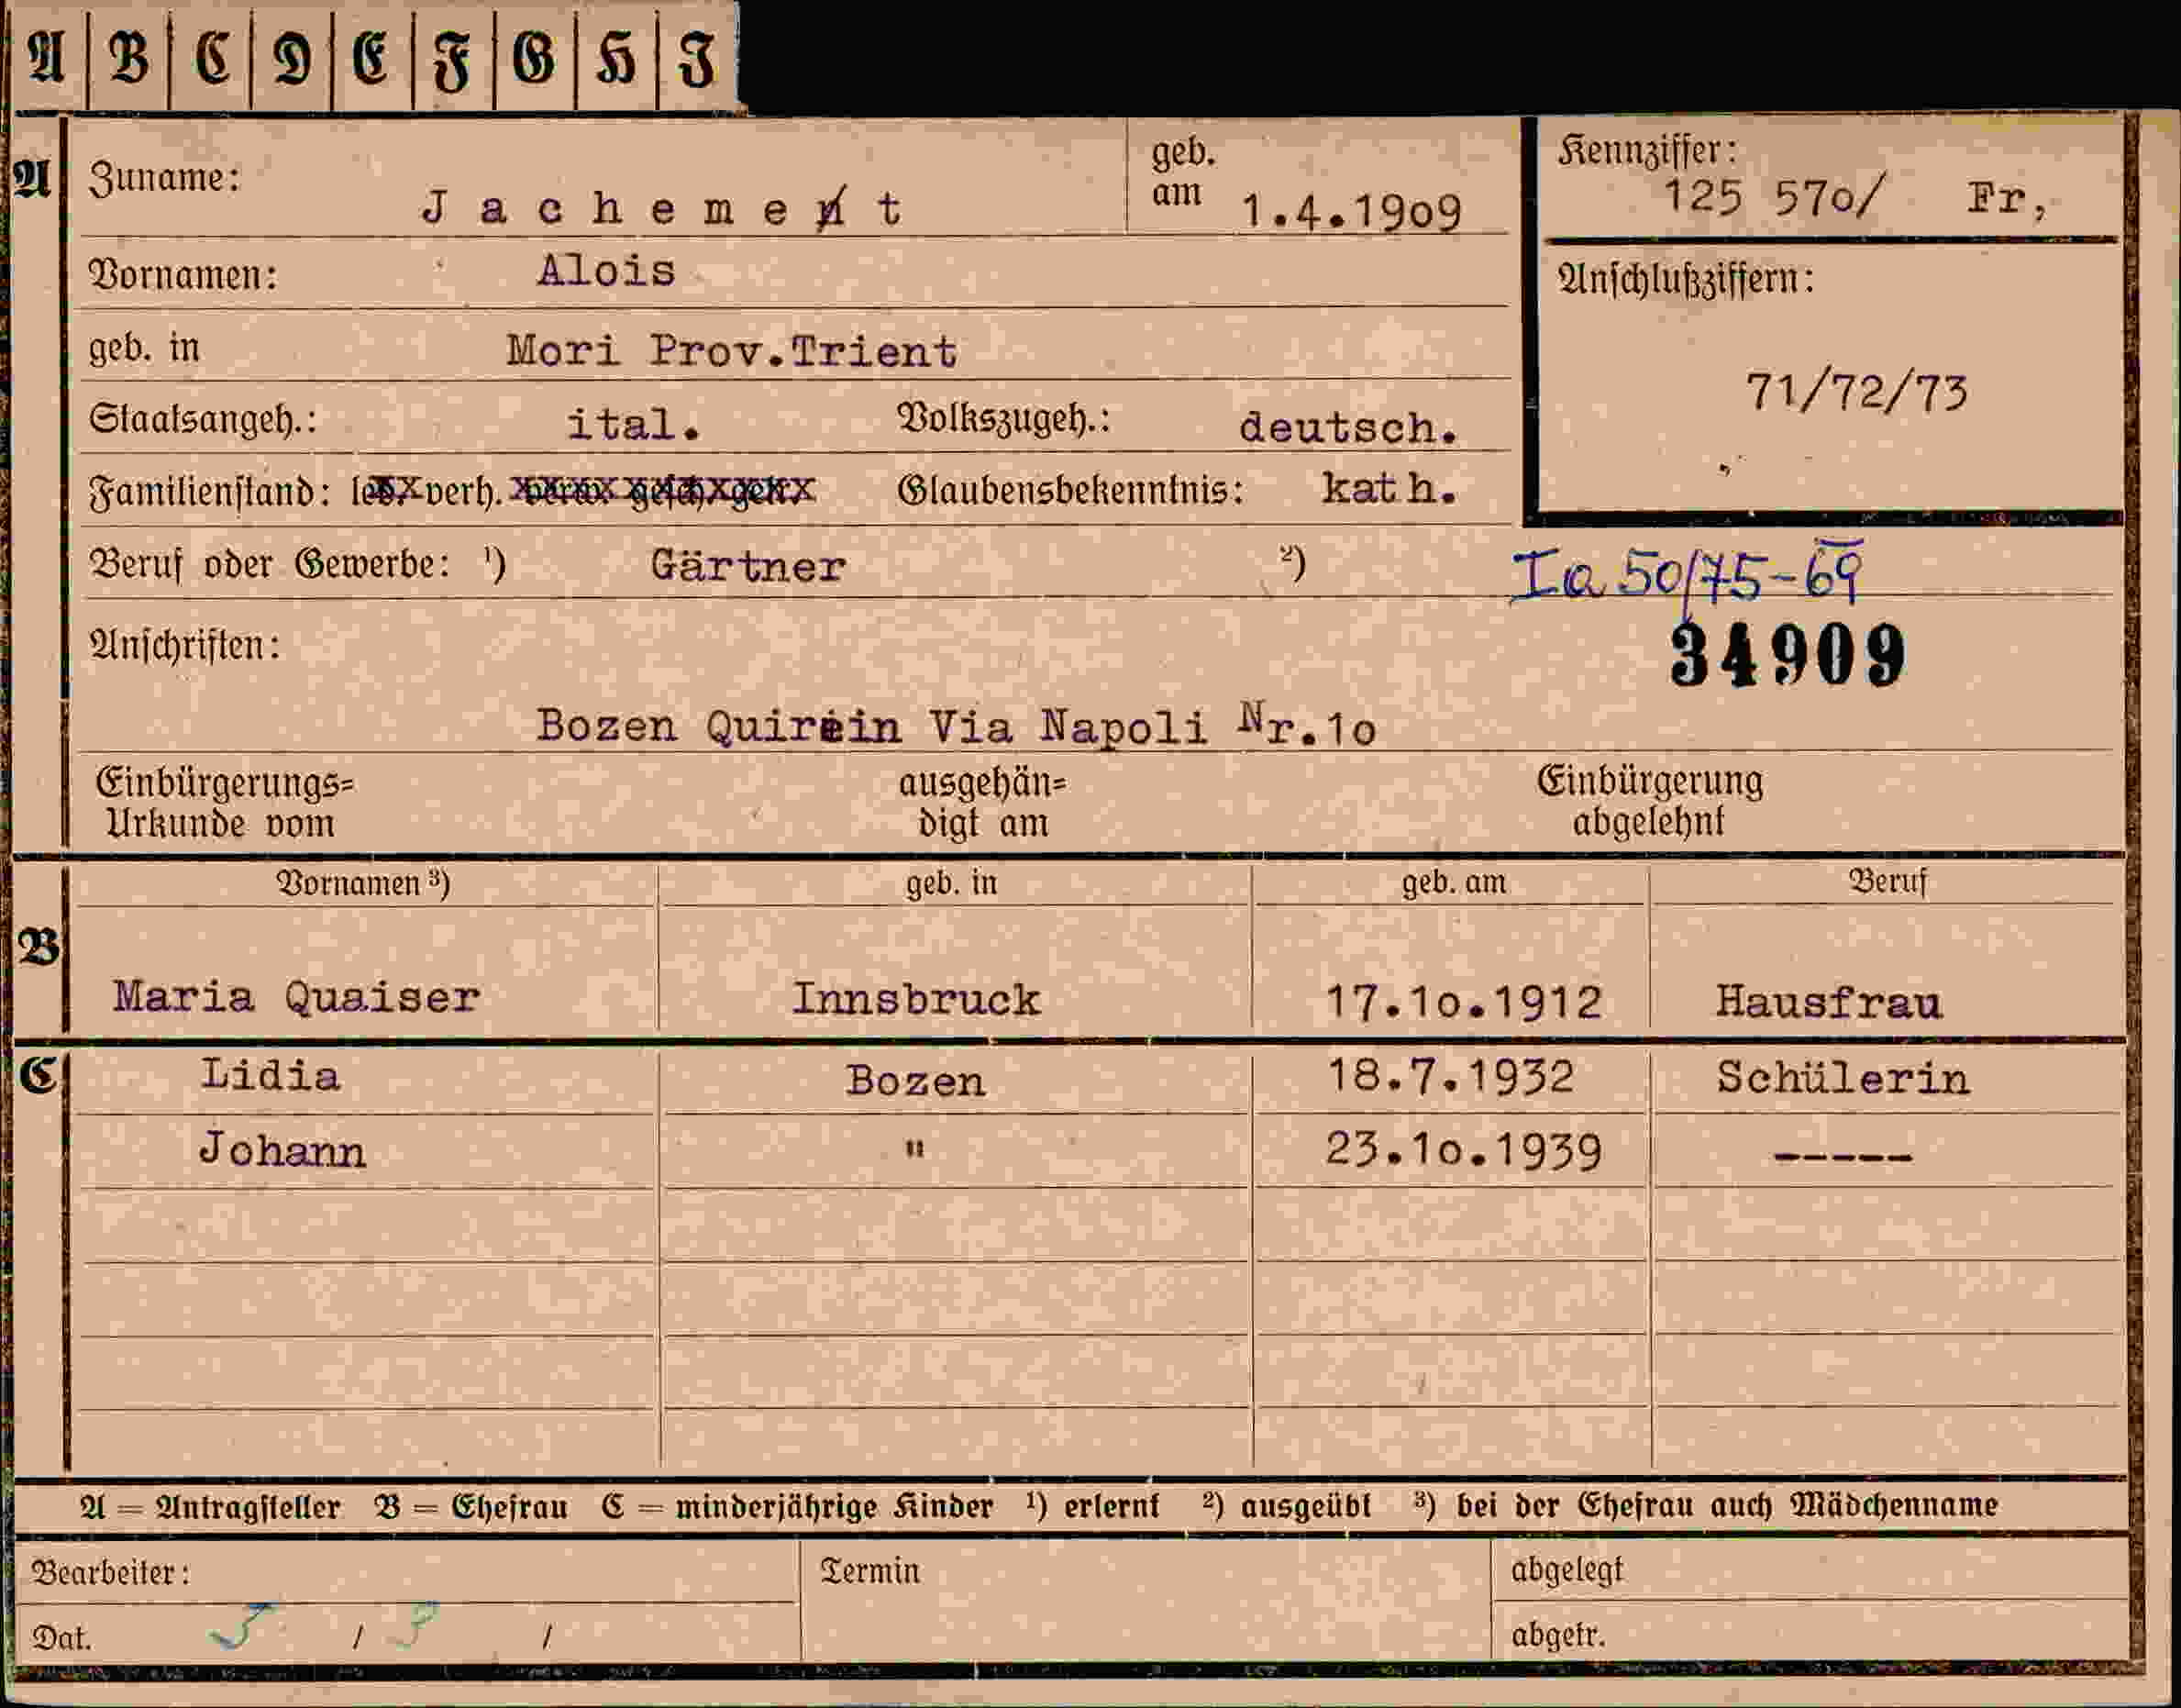 A B C D E F G H I
A Zuname: Jachemet geb. am 1.4.1909 Kennziffer: 125 570/ Fr,
Vornamen: Alois Anschlußziffern:
geb. in Mori Prov.Trient 71/72/73
Staatsangeh.: ital. Volkszugeh.: deutsch.
Familienstand: verh. Glaubensbekenntnis: kath.
Beruf oder Gewerbe: ¹) Gärtner ²) Ia 50/75-69
Anschriften: 34909
Bozen Quirein Via Napoli Nr.10
Einbürgerungs= ausgehän= Einbürgerung
Urkunde vom digt am abgelehnt
Vornamen ³) geb. in geb. am Beruf
B
Maria Quaiser Innsbruck 17.10.1912 Hausfrau
C Lidia Bozen 18.7.1932 Schülerin
Johann " 23.10.1939 -----
A = Antragsteller B = Ehefrau C = minderjährige Kinder ¹) erlernt ²) ausgeübt ³) bei der Ehefrau auch Mädchenname
Bearbeiter: Termin abgelegt
Dat. / / abgetr.